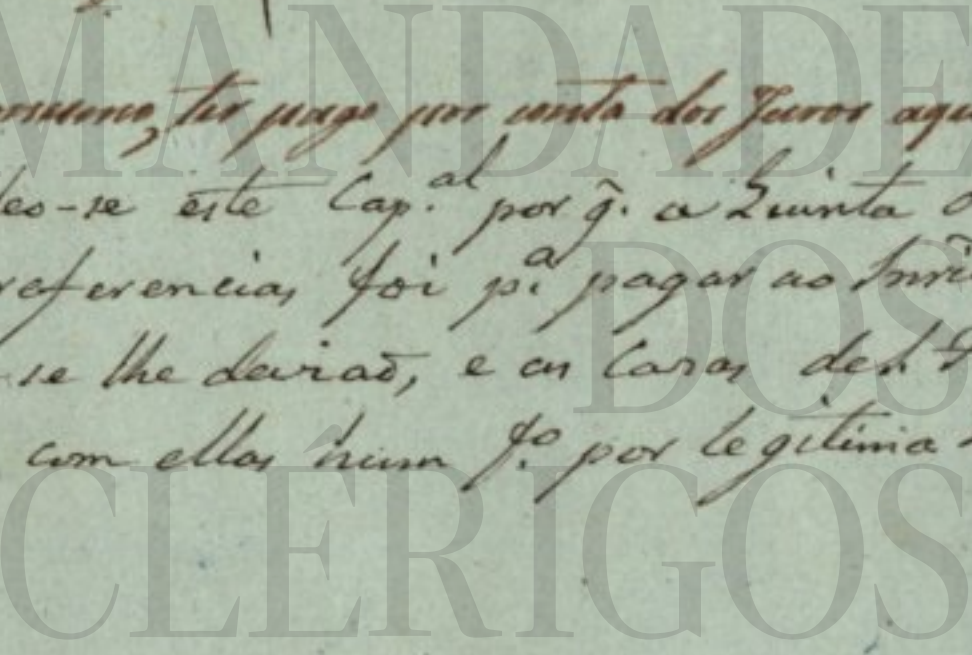 ter pago por conta dos Juros
deo-se este Cap.al por q̃. a Quinta
referencias foi p.a pagar ao
se lhe devião, e as Casas de S.
com ellas hum f.o por legitima
MANDADE
DOS
CLÉRIGOS